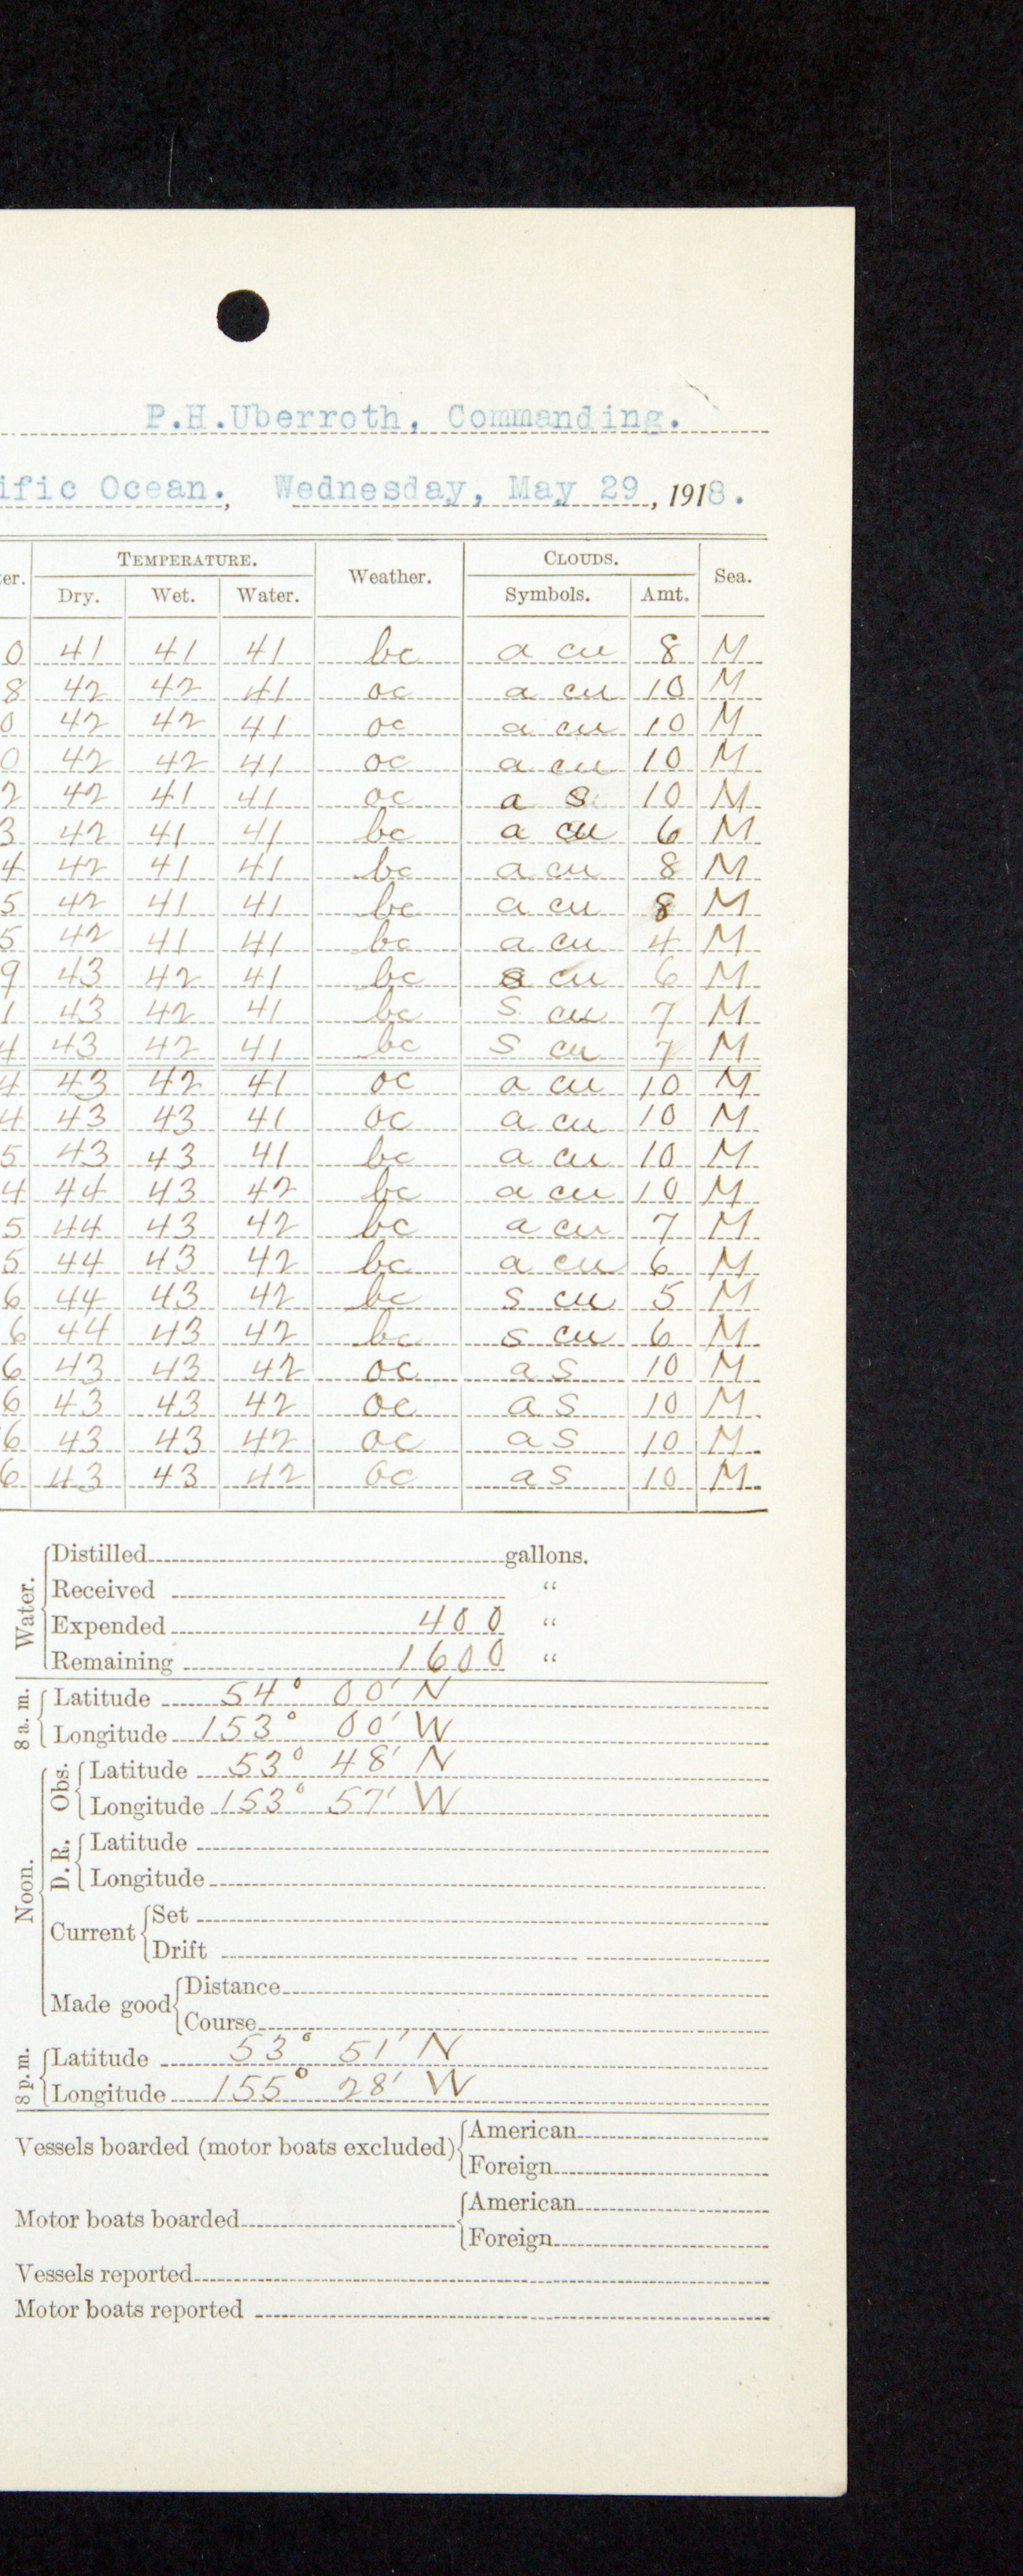 P.H.Uberroth, Commanding.
ific Ocean., Wednesday, May 29, 1918.
TEMPERATURE. CLOUDS.
er. Weather. Sea.
Dry. Wet. Water. Symbols. Amt.
0 41 41 41 bc a cu 8 M
8 42 42 41 oc a cu 10 M
0 42 42 41 oc a cu 10 M
0 42 42 41 oc a cu 10 M
2 42 41 41 oc a s 10 M
3 42 41 41 bc a cu 6 M
4 42 41 41 bc a cu 8 M
5 42 41 41 bc a cu 8 M
5 42 41 41 bc a cu 4 M
9 43 42 41 bc s cu 6 M
1 43 42 41 bc s cu 7 M
4 43 42 41 bc s cu 7 M
4 43 42 41 oc a cu 10 M
4 43 43 41 oc a cu 10 M
5 43 43 41 bc a cu 10 M
4 44 43 42 bc a cu 10 M
5 44 43 42 bc a cu 7 M
5 44 43 42 bc a cu 6 M
6 44 43 42 bc s cu 5 M
6 44 43 42 bc s cu 6 M
6 43 43 42 oc a s 10 M
6 43 43 42 oc a s 10 M
6 43 43 42 oc a s 10 M
6 43 43 42 oc a s 10 M
Water.
Distilled gallons.
Received "
Expended 400 "
Remaining 1600 "
8 a. m.
Latitude 54° 00' N
Longitude 153° 00' W
Noon.
Obs.
Latitude 53° 48' N
Longitude 153° 57' W
D. R.
Latitude
Longitude
Current
Set
Drift
Made good
Distance
Course
8 p. m.
Latitude 53° 51' N
Longitude 155° 28' W
Vessels boarded (motor boats excluded)
American
Foreign
Motor boats boarded
American
Foreign
Vessels reported
Motor boats reported